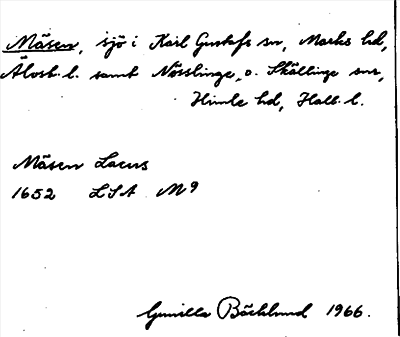 Mäsen, sjö i Karl Gustafs sn, Marks hd,
Älvsb. l. samt Nösslinge o. Skällinge snr,
Himle hd, Hall. l.
Mäsen Lacus
1652 LSA M9
Gunilla Bäcklund 1966.